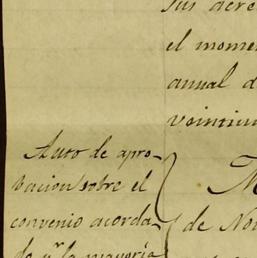 sus acre
el momen
annual d
veinticin
Auto de apro-
bacion sobre el
convenio acorda-
do pr la mayoría
de Nov